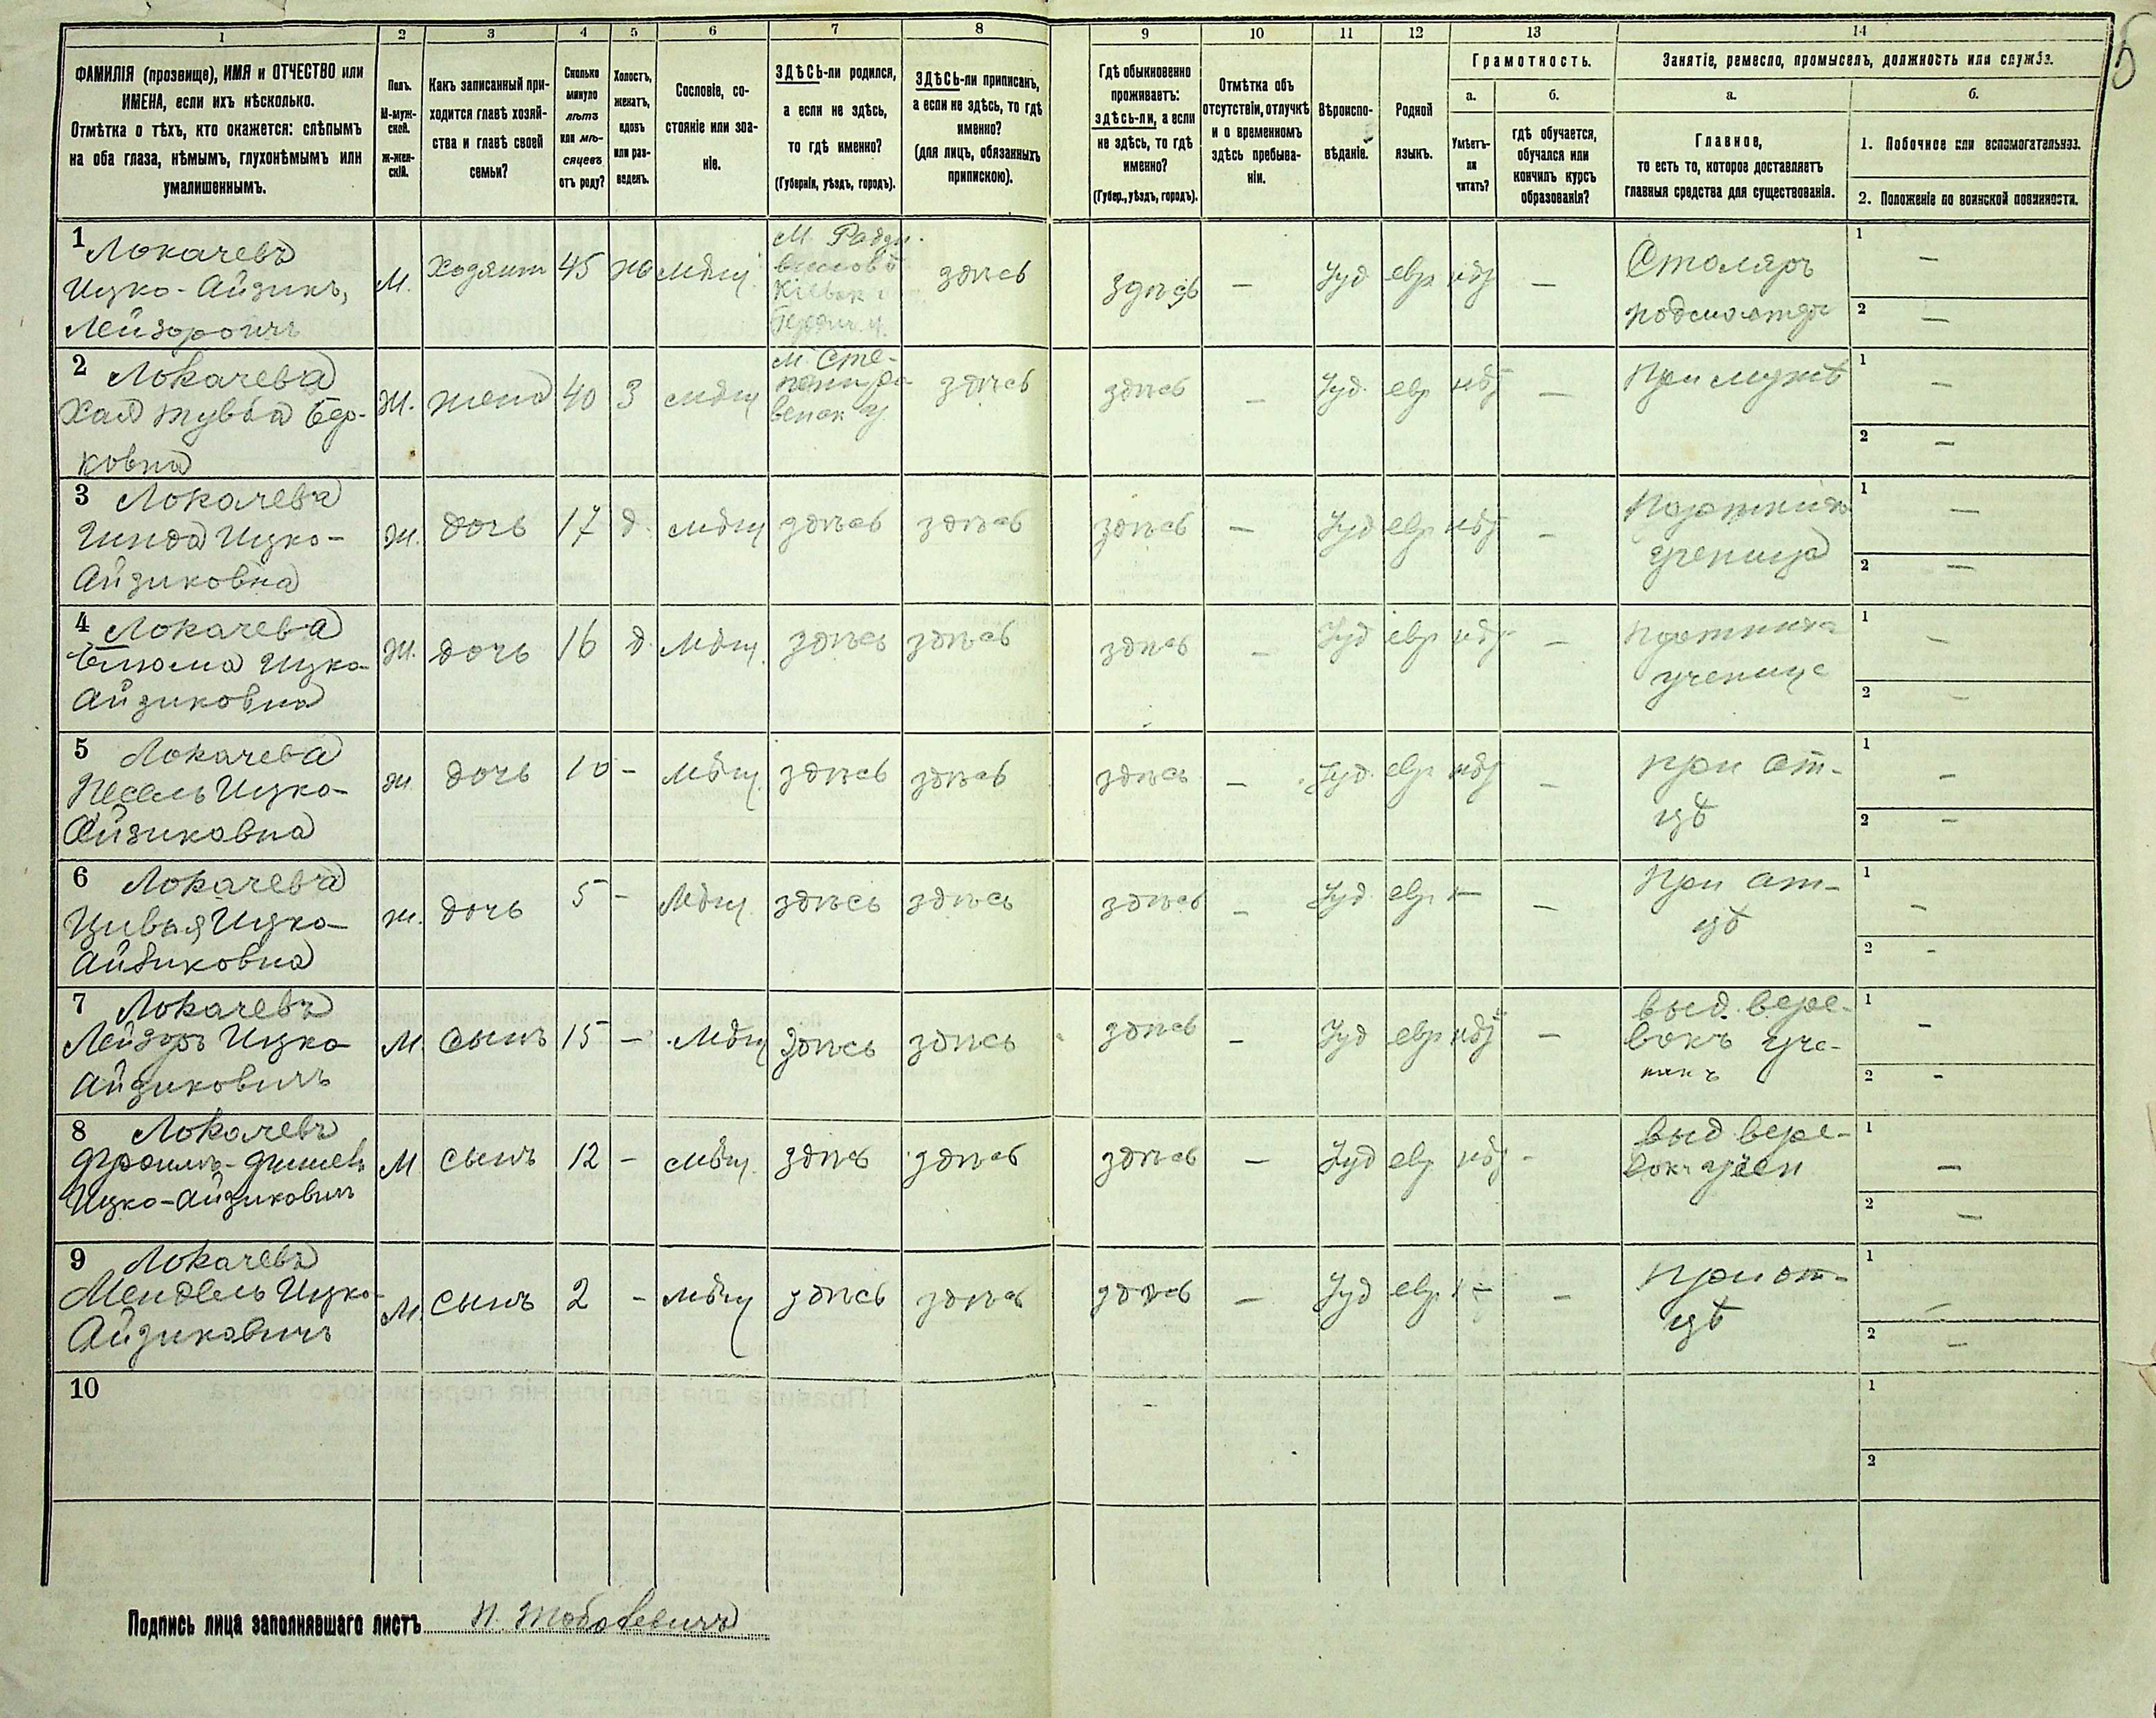 1 2 3 4 5 6 7 8 9 10 11 12 13 14
ФАМИЛІЯ (прозвище), ИМЯ и ОТЧЕСТВО или
ИМЕНА, если ихъ нѣсколько.
Отмѣтка о тѣхъ, кто окажется: слѣпымъ
на оба глаза, нѣмымъ, глухонѣмымъ или
умалишеннымъ.
Полъ.
М-муж-
ской.
ж-жен-
скій.
Какъ записанный при-
ходится главѣ хозяй-
ства и главѣ своей
семьи?
Сколько
минуло
лѣтъ
или мѣ-
сяцевъ
отъ роду?
Холостъ,
женатъ,
вдовъ
или раз-
веденъ.
Сословіе, со-
стояніе или зва-
ніе.
ЗДѢСЬ-ли родился,
а если не здѣсь,
то гдѣ именно?
(Губернія, уѣздъ, городъ).
ЗДѢСЬ-ли приписанъ,
а если не здѣсь, то гдѣ
именно?
(для лицъ, обязанныхъ
припискою).
Гдѣ обыкновенно
проживаетъ:
здѣсь-ли, а если
не здѣсь, то гдѣ
именно?
(Губер., уѣздъ, городъ).
Отмѣтка объ
отсутствіи, отлучкѣ
и о временномъ
здѣсь пребыва-
ніи.
Вѣроиспо-
вѣданіе.
Родной
языкъ.
Грамотность.
а.
Умѣетъ-
ли
читать?
б.
гдѣ обучается,
обучался или
кончилъ курсъ
образованія?
Занятіе, ремесло, промыселъ, должность или служба.
а.
Главное,
то есть то, которое доставляетъ
главныя средства для существованія.
б.
1. Побочное или вспомогательное.
2. Положеніе по воинской повинности.
1 Локачевъ
Ицко-Айзикъ,
Лейзоровичъ
М.
Хозяинъ
45
мѣщ.
М. Радзи-
виловъ
здѣсь
здѣсь
—
Іуд
евр
—
Столяръ
подмастер
1 —
2 —
2 Локачева
Хая
ковна
Ж.
жена
40
З
мѣщ
М. Сте-
здѣсь
здѣсь
—
Іуд.
евр
—
При мужѣ
1 —
2 —
3 Локачева
Гинда Ицко-
Айзиковна
Ж.
дочь
17
д.
мѣщ
здѣсь
здѣсь
здѣсь
—
Іуд
евр
—
ученица
1 —
2 —
4 Локачева
Ицко-
Айзиковна
Ж.
дочь
16
д.
Мѣщ.
здѣсь
здѣсь
здѣсь
—
Іуд
евр
—
ученица
1 —
2 —
5 Локачева
Песель Ицко-
Айзиковна
ж
дочь
10
—
Мѣщ.
здѣсь
здѣсь
здѣсь
—
Іуд.
евр
—
при от-
цѣ
1 —
2 —
6 Локачева
Цивья Ицко-
Айзиковна
ж.
дочь
5
—
Мѣщ.
здѣсь
здѣсь
здѣсь
—
Іуд
евр
—
При от-
цѣ
1 —
2 —
7 Локачевъ
Лейзоръ Ицко
Айзиковичъ
М.
сынъ
15
—
Мѣщ
здѣсь
здѣсь
здѣсь
—
Іуд
евр
—
выд. вере-
вокъ уче-
никъ
1 —
2 —
8 Локачевъ
Ицко-Айзиковичъ
М
сынъ
12
—
мѣщ.
здѣсь
здѣсь
здѣсь
—
Іуд
евр
—
выд вере-
вокъ учен
1 —
2 —
9 Локачевъ
Мендель Ицко-
Айзиковичъ
М.
сынъ
2
—
мѣщ
здѣсь
здѣсь
здѣсь
—
Іуд
евр
—
При от-
цѣ
1 —
2 —
10
1
2
Подпись лица заполнявшаго листъ